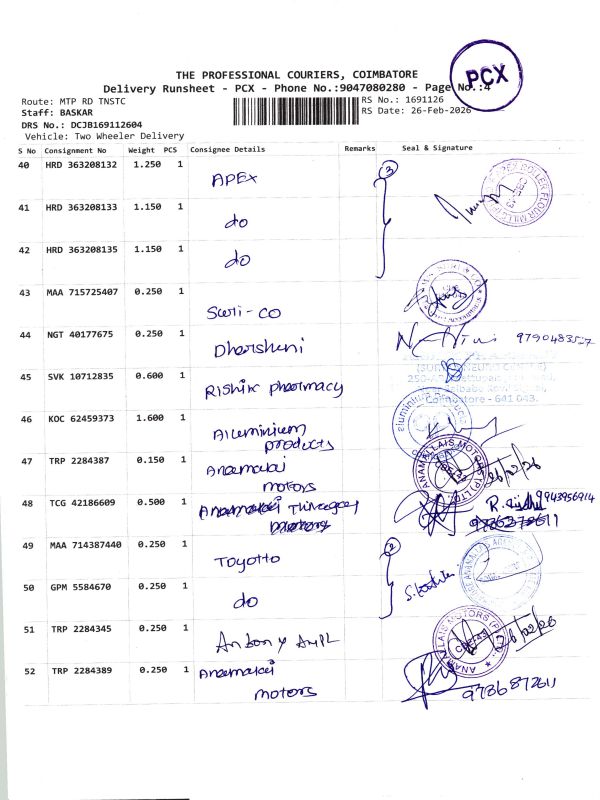 PCX
THE PROFESSIONAL COURIERS, COIMBATORE
Delivery Runsheet - PCX - Phone No.:9047080280 - Page No.:4
Route: MTP RD TNSTC
RS No.: 1691126
Staff: BASKAR
RS Date: 26-Feb-2026
DRS No.: DCJB169112604
Vehicle: Two Wheeler Delivery
S No Consignment No Weight PCS Consignee Details Remarks Seal & Signature
40 HRD 363208132 1.250 1 APEX 3
41 HRD 363208133 1.150 1 do
42 HRD 363208135 1.150 1 do
43 MAA 715725407 0.250 1 Swri-co
44 NGT 40177675 0.250 1 Dharshini 9790483527
45 SVK 10712835 0.600 1 Rishik pharmacy
Coimbatore - 641 043.
46 KOC 62459373 1.600 1 Aluminium
products
47 TRP 2284387 0.150 1 Anamalai
motors
ANAMALLAIS MOTORS (P) LTD
26/02/26
48 TCG 42186609 0.500 1 9943956914
49 MAA 714387440 0.250 1 Toyotto 2
50 GPM 5584670 0.250 1 do
51 TRP 2284345 0.250 1 Antony AMPL
ANAMALLAIS MOTORS (P)
26/02/26
52 TRP 2284389 0.250 1 Anamalai
motors
9786872611